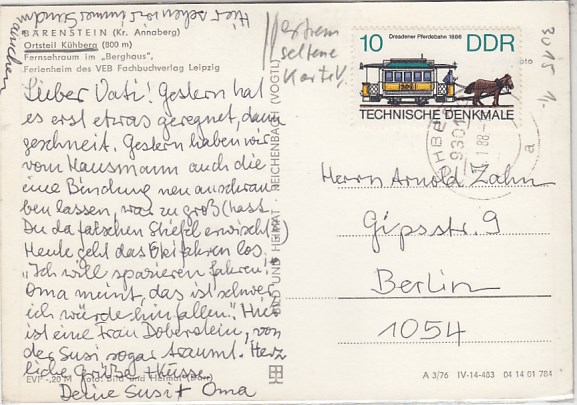 Hier scheint immer Sandmännchen
BÄRENSTEIN (Kr. Annaberg)
Ortsteil Kühberg (800 m)
Fernsehraum im „Berghaus",
Ferienheim des VEB Fachbuchverlag Leipzig
Lieber Vati! Gestern hat
es erst etwas geregnet, dann
geschneit. Gestern haben wir
vom Hausmann auch die
eine Bindung neu anschrau-
ben lassen, war zu groß (hast
Du da falschen Stiefel erwischt?)
Heute geht das Skifahren los.
„Ich will spazieren fahren!
Oma meint, das ist schwer
ich würde hinfallen." Hier
ist eine Frau Doberstein, von
der Susi sogar träumt. Herz
liche Grüße + Küsse
Deine Susi + Oma
EVP -,20 M Foto: Bild und Heimat
BILD UND HEIMAT · REICHENBACH (VOGTL)
extrem
seltene
Karte V.
10
Dresdener Pferdebahn 1886
DDR
TECHNISCHE DENKMALE
3015 1,-
9301
1.88.-
a
Herrn Arnold Zahn
Gipsstr. 9
Berlin
1054
A 3/76 IV-14-483 04 14 01 784